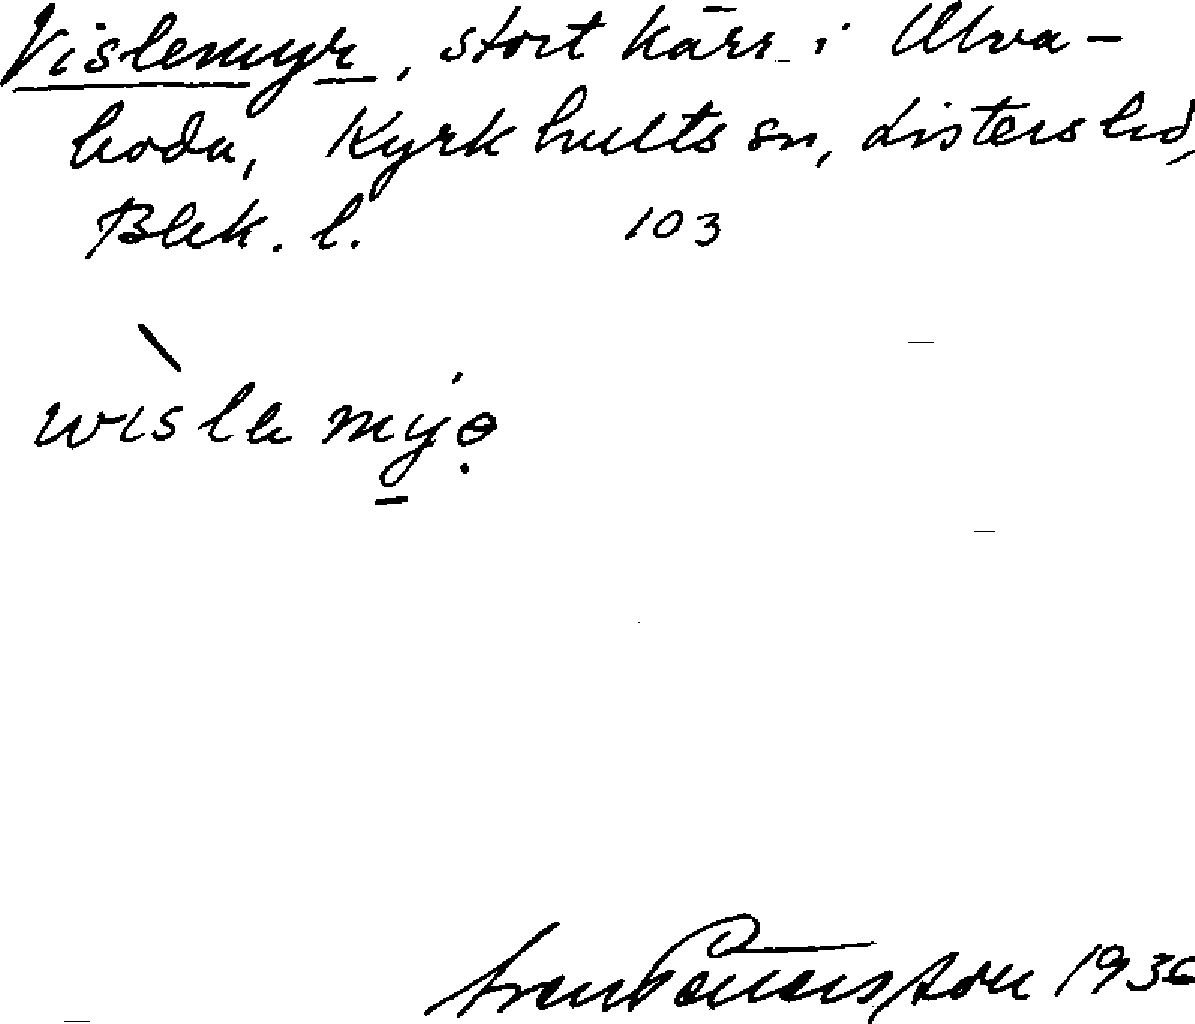 Vislemyr, stort kärr i Ulva-
boda, Kyrkhults sn, Listers hd,
Blek. l. 103
Pettersson 1936